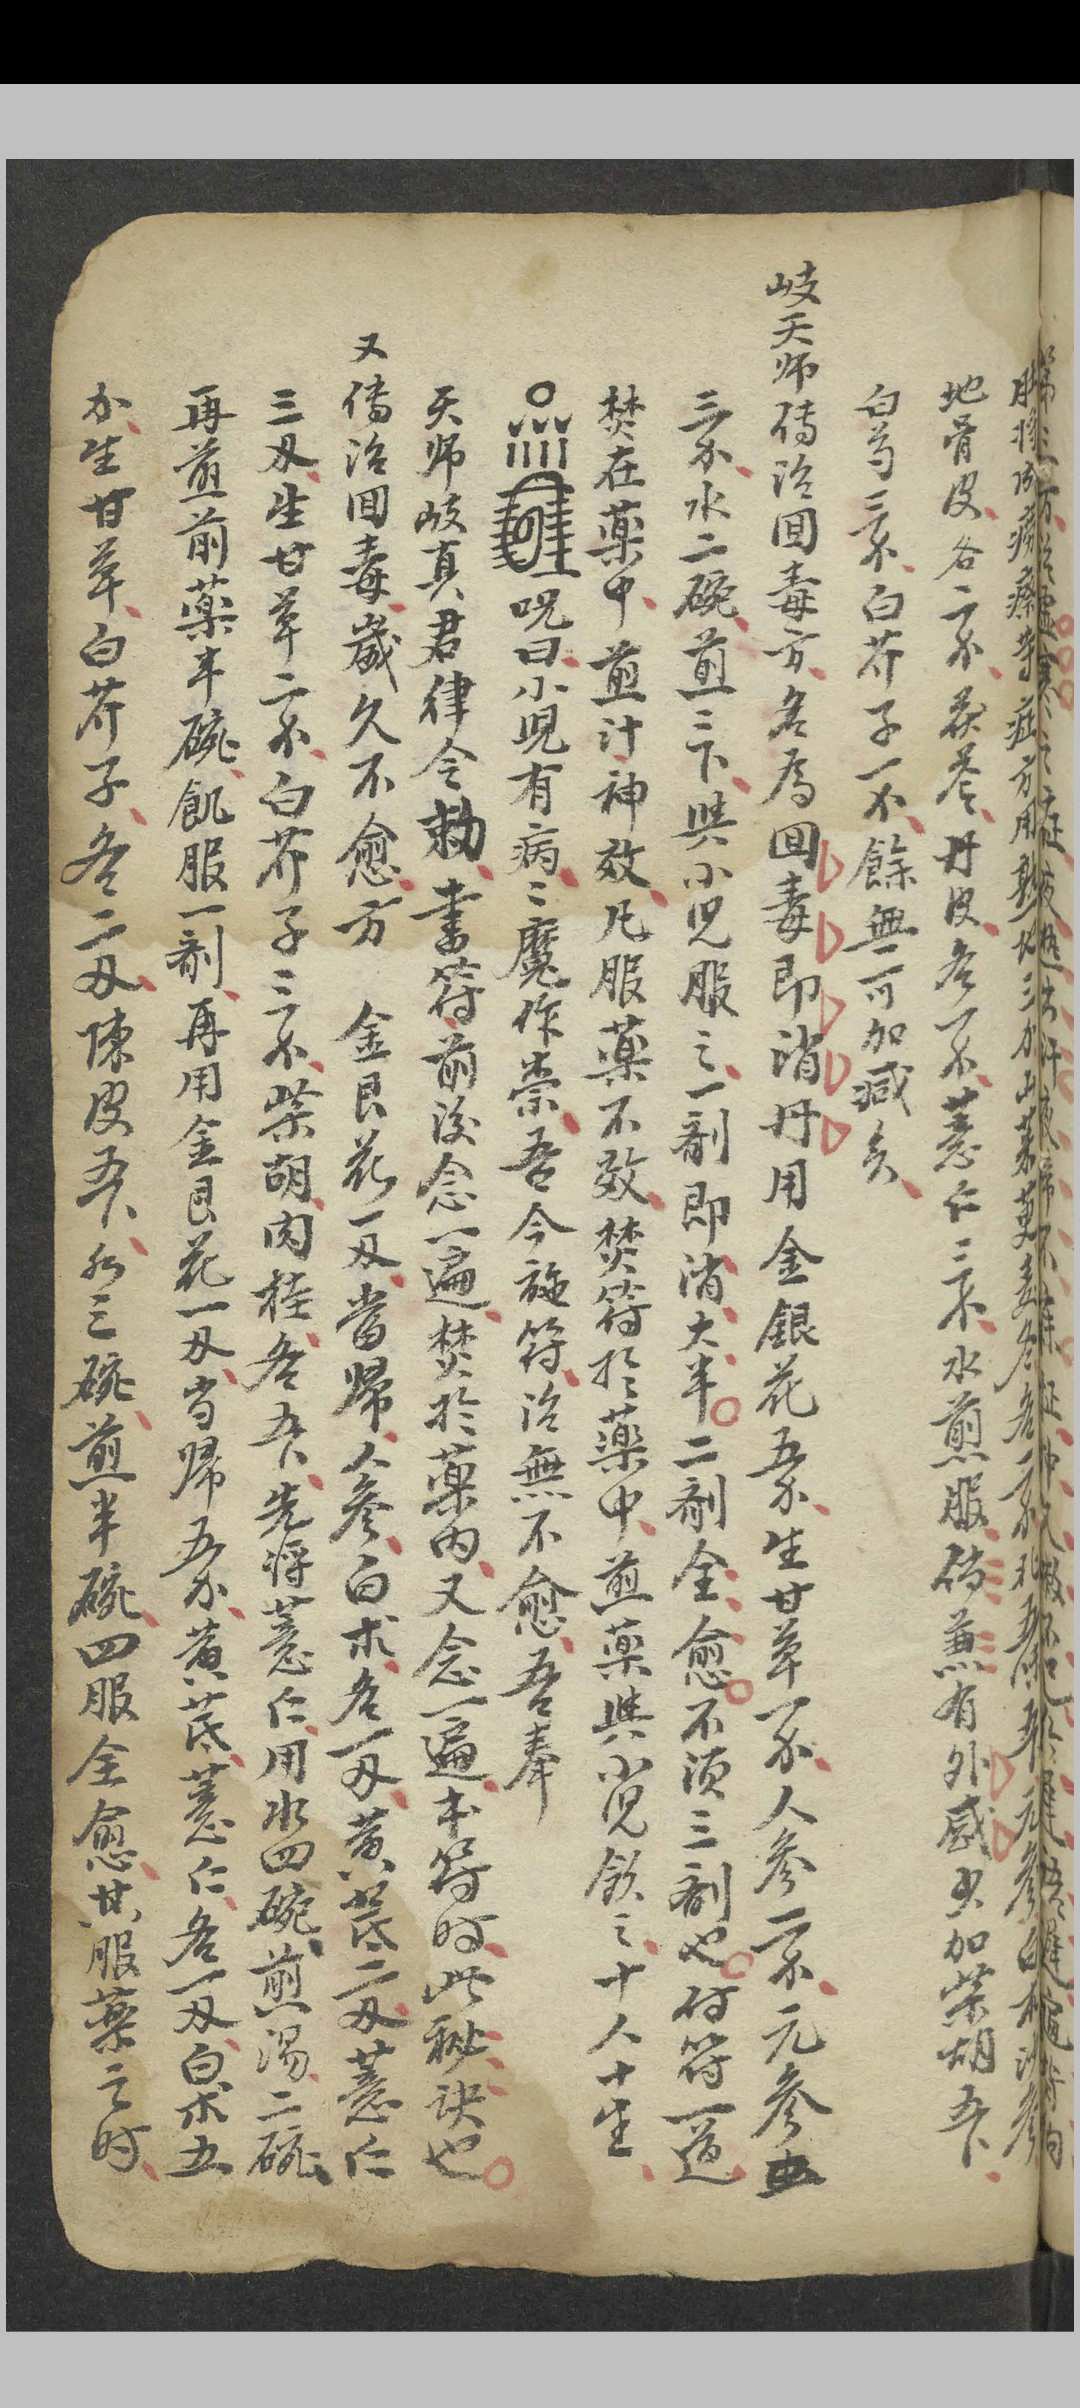 地骨皮各二不茯苓丹皮各一不薏仁三不水煎服倘兼有外感少加柴胡五卜
白芍三不白芥子一不餘無可加減矣
岐天师傳治回毒方名为回毒即消丹用金銀花五不生甘草一不人參二不元參
三不水二碗煎三卜與小児服之一劑即消大半二劑全愈不須三劑也付符一道
焚在薬中煎汁神效凡服薬不效焚符扵薬中煎薬與小児飲之十人十生
呪曰小児有病〻魔作祟吾今施符治無不愈吾奉
天师岐真君律令勅書符前後念一遍焚扵薬内又念一遍本符时此秘訣也
又傳治回毒歲久不愈方 金艮花一刄當歸人參白朮各一刄黄芪二刄薏仁
三刄生甘草二不白芥子三不柴胡肉桂各五卜先将薏仁用水四碗煎湯二碗
再煎前薬半碗飢服一劑再用金艮花一刄当歸五不黄芪薏仁各一刄白朮五
不生甘草白芥子各二刄陳皮五卜水三碗煎半碗四服全愈其服薬之时